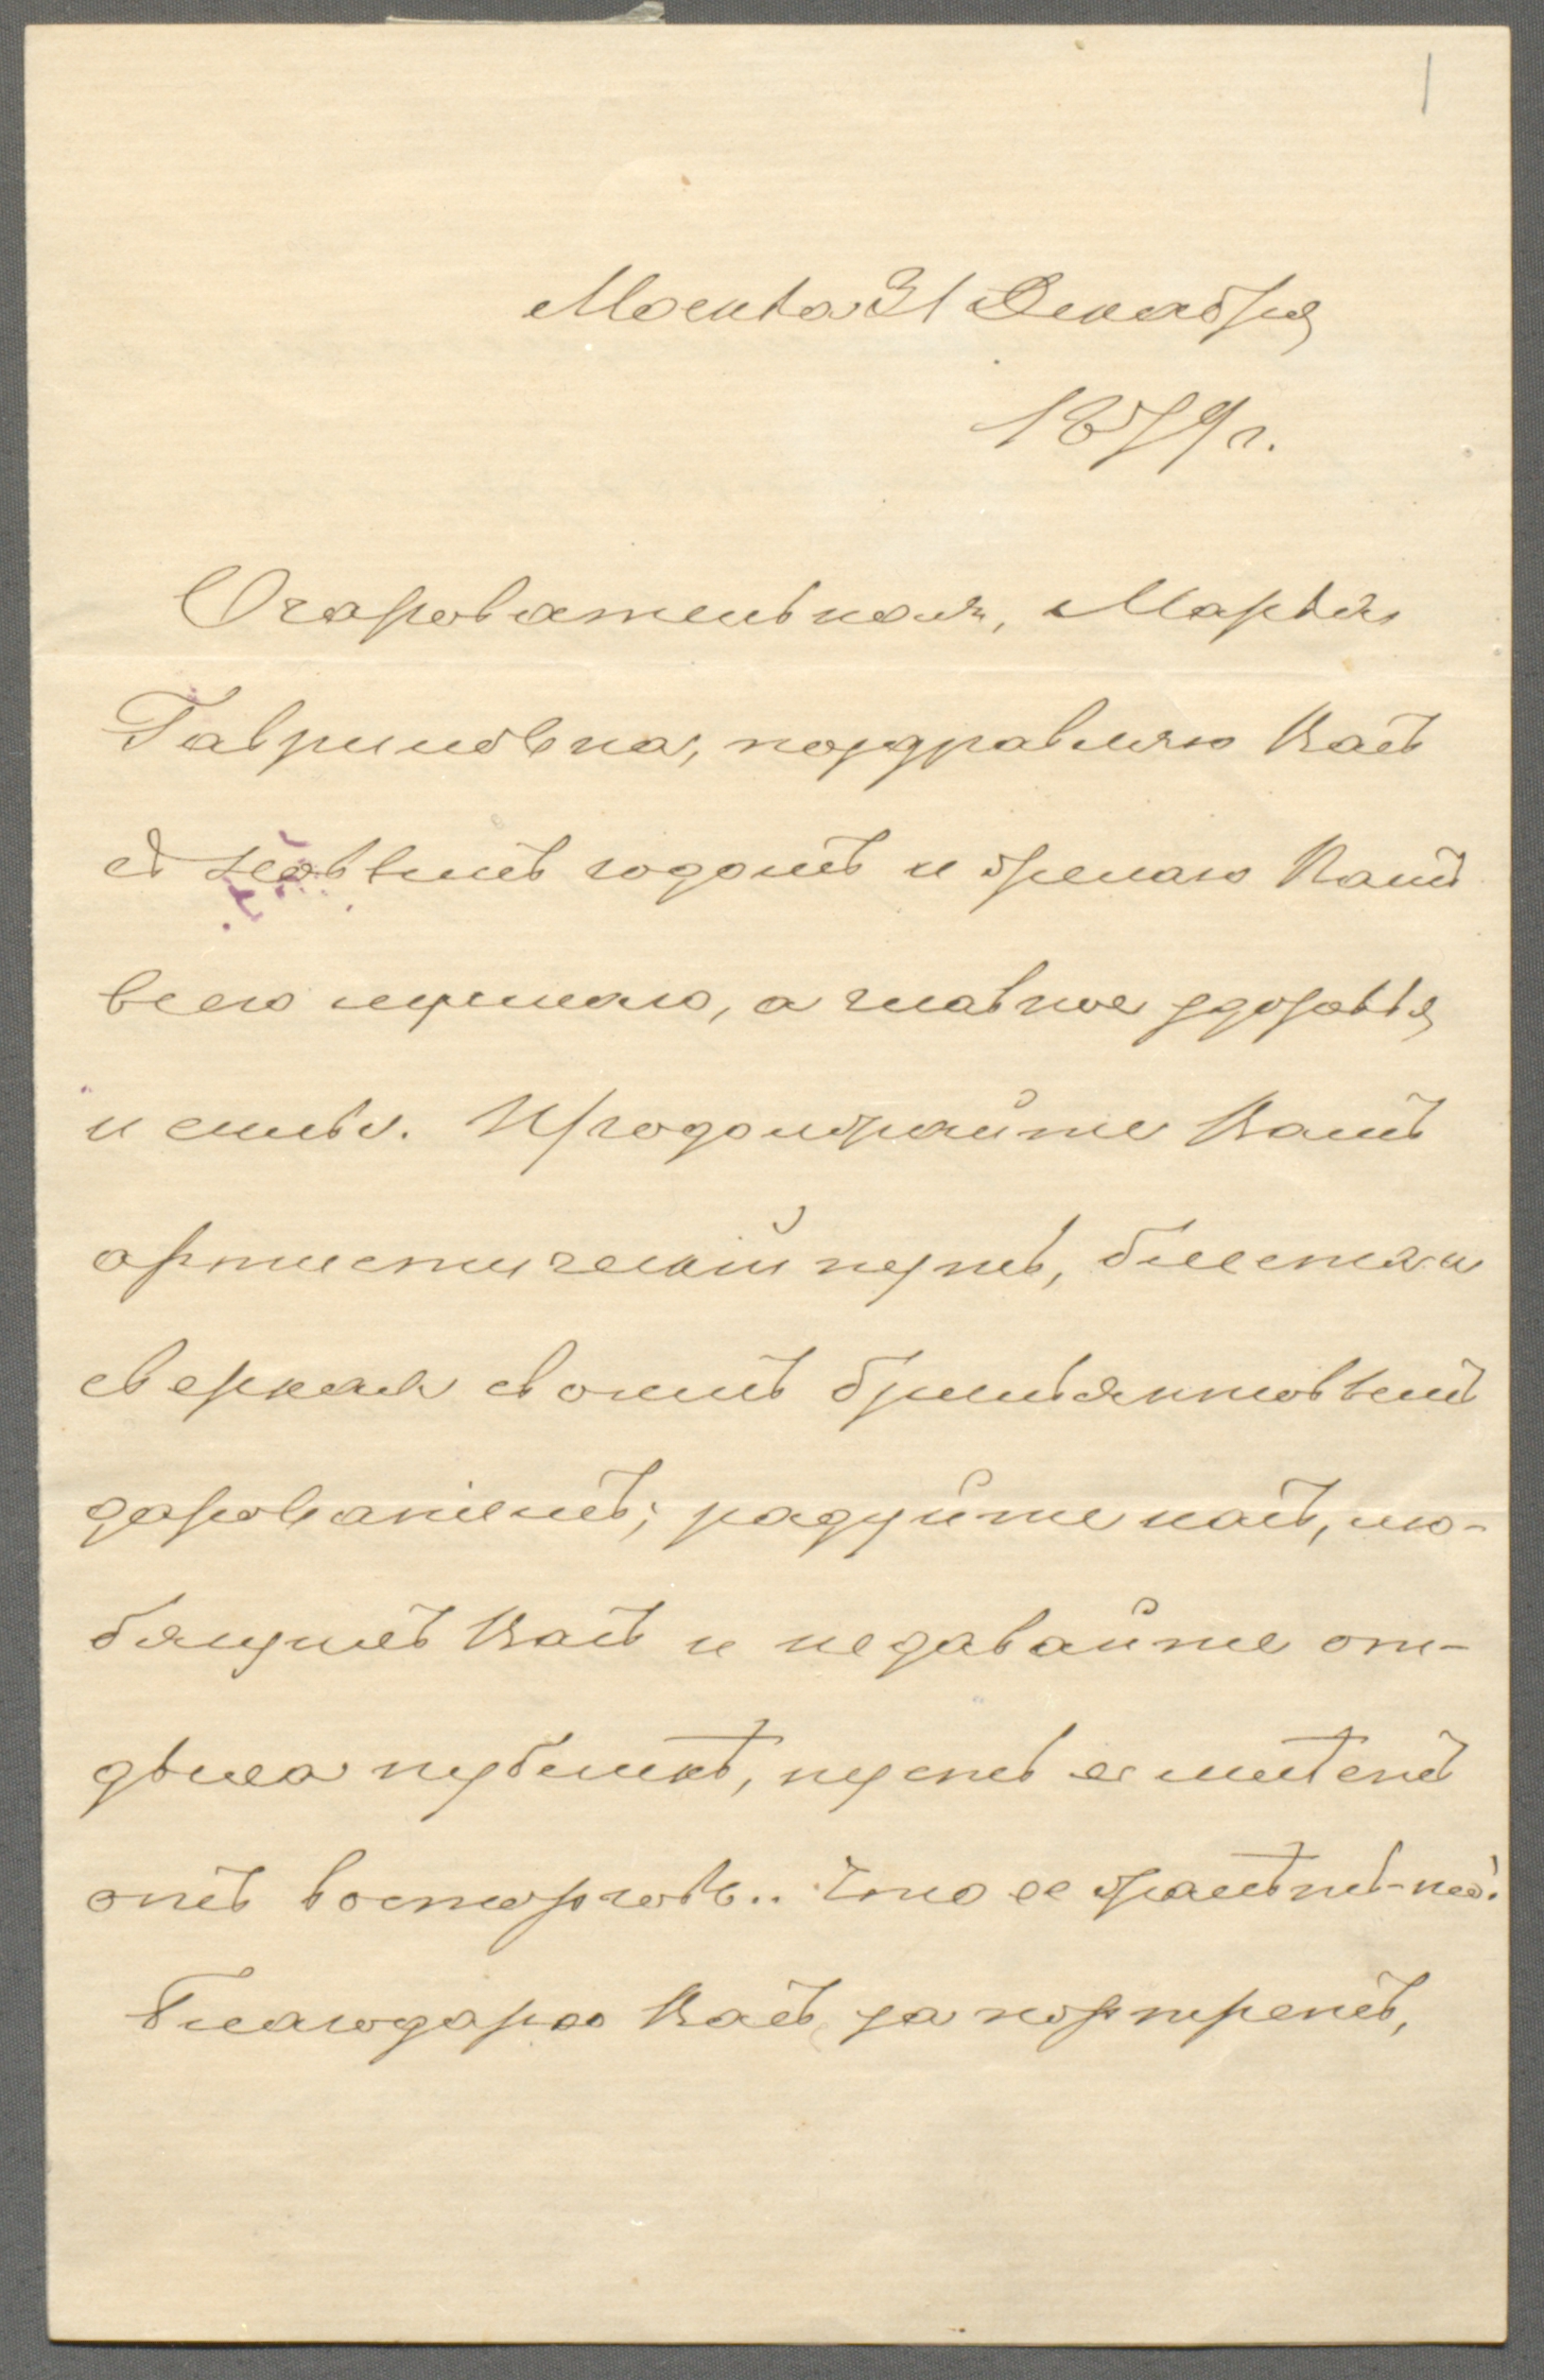 1
Москва 31 Декабря
1879 г.
Очаровательная, Марья
Гавриловна, поздравляю Васъ
съ Новымъ годомъ и желаю Вамъ
всего лучшаго, а главное здоровья
и силы. Продолжайте Вашъ
артистическій путь, блестя и
сверкая своимъ брильянтовымъ
дарованіемъ; радуйте насъ, лю-
бящихъ Васъ и недавайте от-
дыха публикѣ, пусть ее млѣетъ
отъ восторговъ.. Что ее жалѣть-то!
Благодарю Васъ за портретъ,